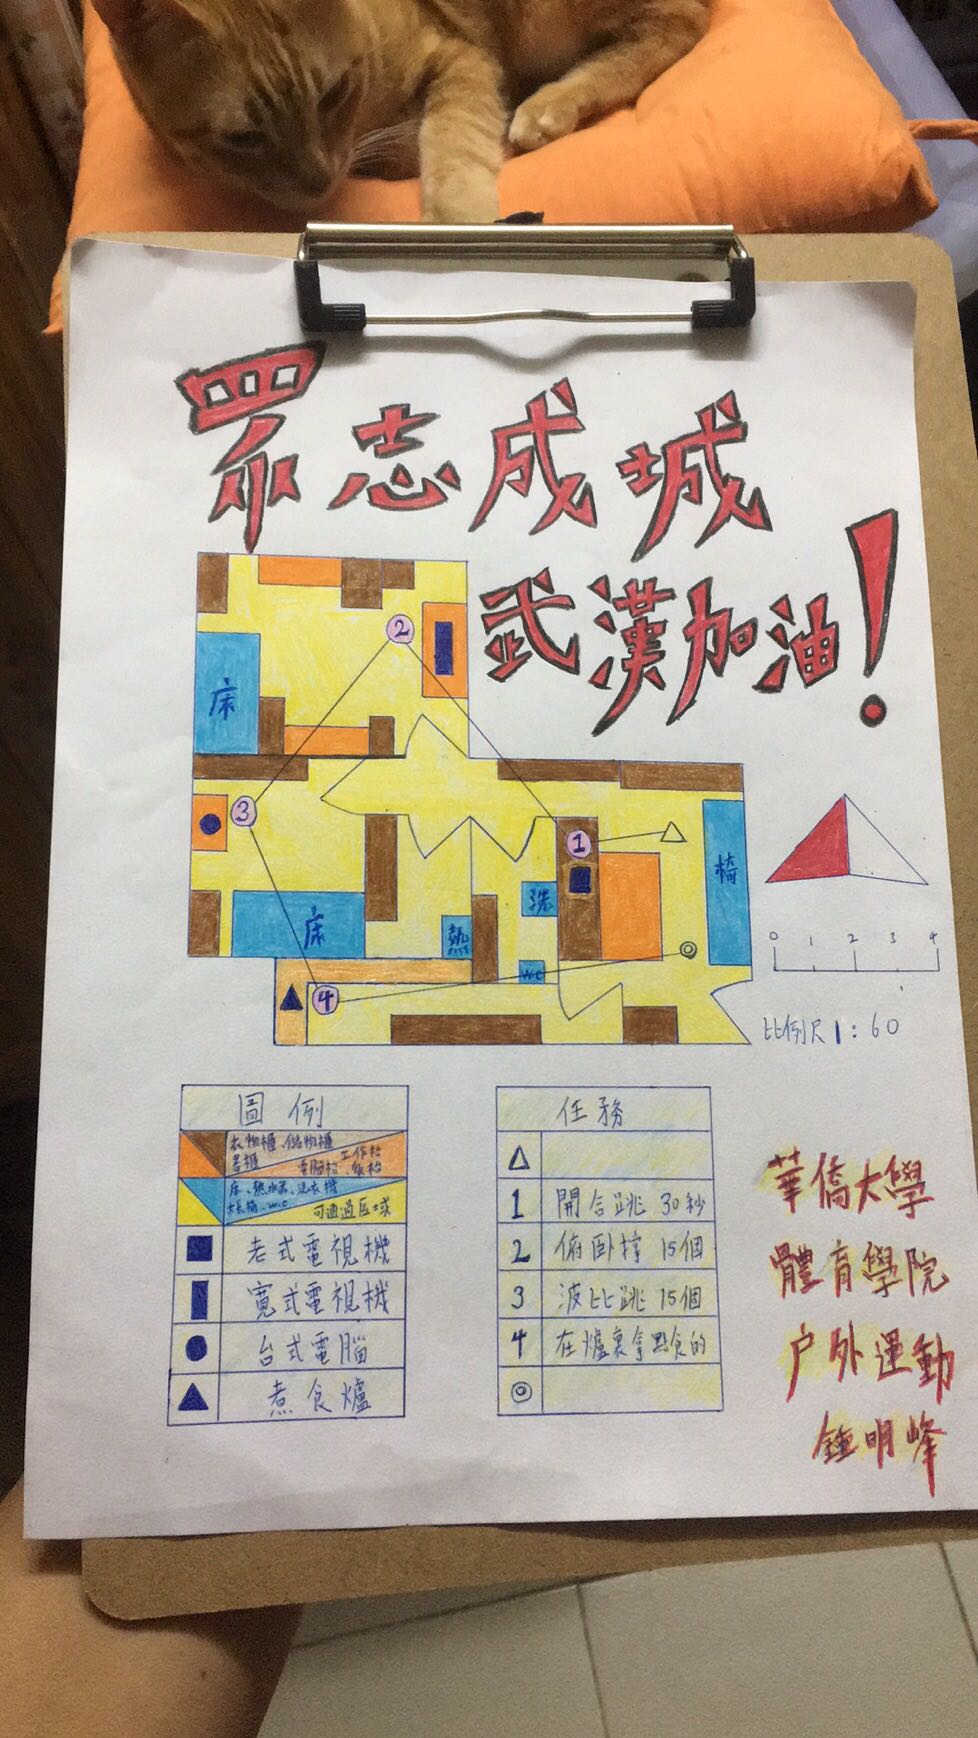 眾志成城
武漢加油!
2
床
3
1
椅
洗
床
熱
WC
4
0 1 2 3 4
比例尺 1:60
圖例
衣物櫃、儲物櫃
書櫃
工作枱
電腦枱、飯枱
床、熱水器、洗衣機
長椅、w.c
可通過區域
老式電視機
寬式電視機
台式電腦
煮食爐
任務
1 開合跳 30秒
2 俯卧撑 15個
3 波比跳 15個
4 在爐裏拿點食的
華僑大學
體育學院
户外運動
鍾明峰